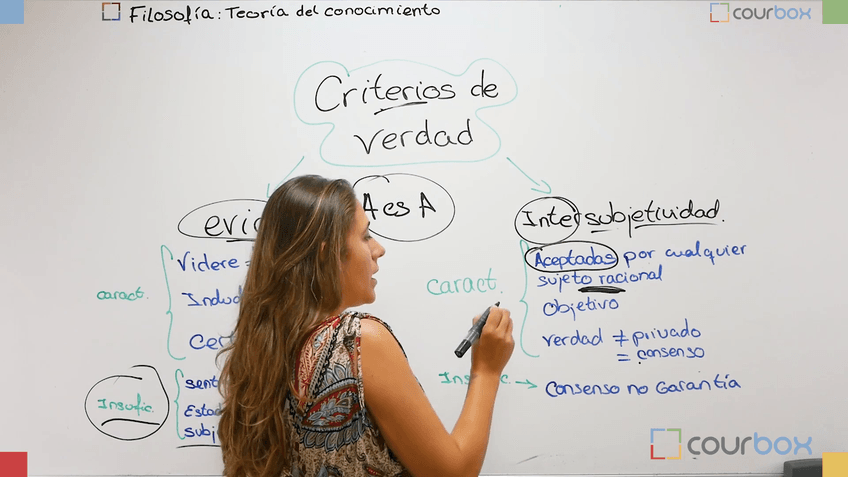 Filosofía: Teoría del conocimiento
courbox
Criterios de
verdad
A es A
evi
Videre =
Indud
Cer
caract.
Insufic.
sent
Estad
subj
Intersubjetividad.
caract.
Aceptadas por cualquier
sujeto racional
Objetivo
verdad ≠ privado
= consenso
Ins c. → Consenso no Garantía
courbox